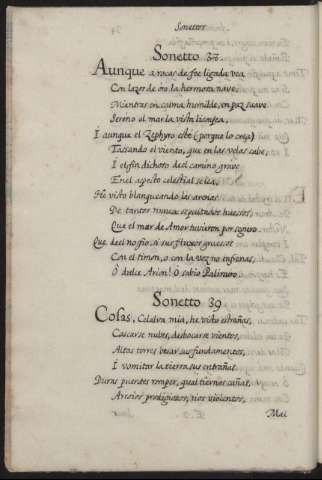 Sonettos
Sonetto 38.
Aunque a rocas de fee ligada vea
Con lazos de oro la hermosa nave,
Mientras en calma humilde, en paz suave
Sereno el mar la vista lisongea,
I aunque el Zephyro esté (porque lo crea)
Tassando el viento, que en las velas cabe,
I el fin dichoso de el camino grave
En el aspecto celestial se lea,
He visto blanqueando las arenas
De tantos nunca sepultados huessos,
Que el mar de Amor tuvieron por seguro.
Que de el no fio, si sus fluxos gruessos
Con el timon, o con la voz no enfrenas,
O dulce Arion! O sabio Palinuro
Sonetto 39
Cosas, Celalva mia, he visto estrañas,
Cascarse nubes, desbocarse vientos,
Altas torres besar sus fundamentos,
I vomitar la tierra sus entrañas.
Duras puentes romper, qual tiernas cañas,
Arroios prodigiosos, rios violentos,
Mal